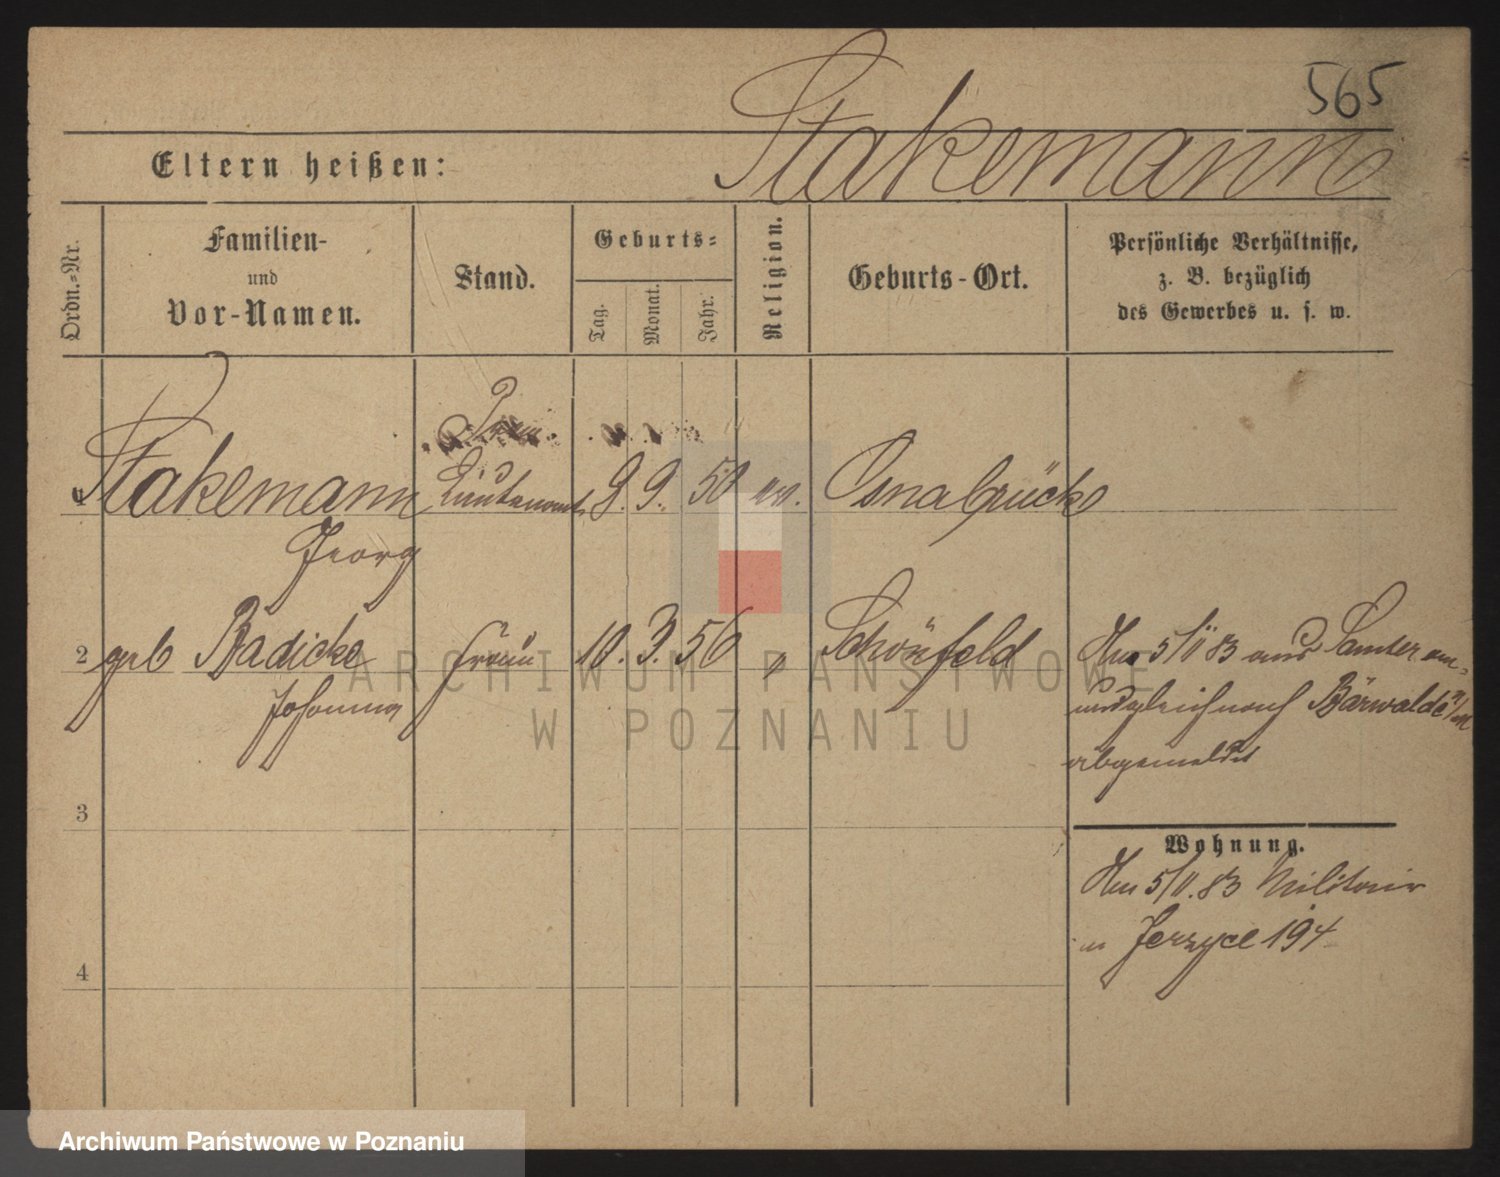 565
Stakemann
Eltern heißen:
Ordn.-Nr.
Familien-
und
Vor-Namen.
Stand.
Geburts-
Tag.
Monat.
Jahr.
Religion.
Geburts-Ort.
Persönliche Verhältnisse,
z. B. bezüglich
des Gewerbes u. s. w.
Prem.
1 Stakemann Lieutenant 9. 9. 50 ev. Osnabrück
Georg
2 geb Radicke Frau 10. 3. 56 " Schönfeld
Johanna
5/11 83 aus Samter
Bärwalde
abgemeldet
3
Wohnung.
5/11. 83 Militair
in Jerzyce 194
4
ARCHIWUM PAŃSTWOWE
W POZNANIU
Archiwum Państwowe w Poznaniu